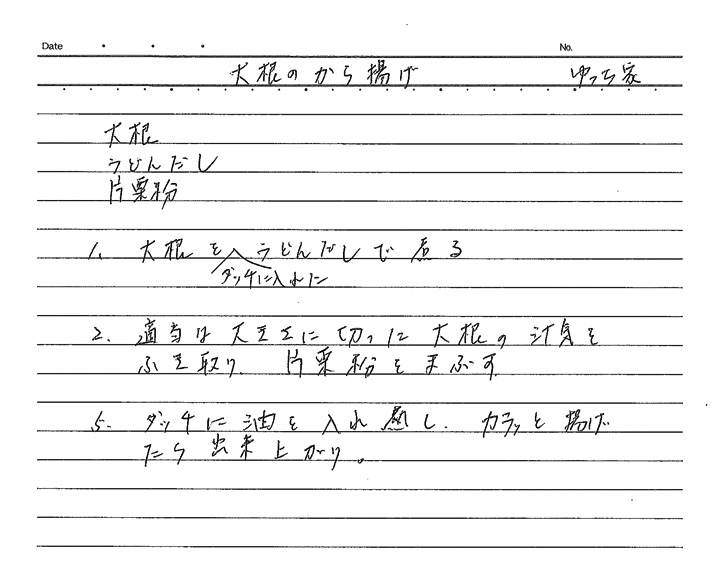 Date ・ ・ ・ No.
大根のから揚げ ゆっち家
大根
うどんだし
片栗粉
1. 大根をうどんだしで煮る
ダッチに入れた
2. 適当な大きさに切った大根の汁気を
ふき取り、片栗粉をまぶす
3. ダッチに油を入れ熱し、カラッと揚げ
たら出来上がり。